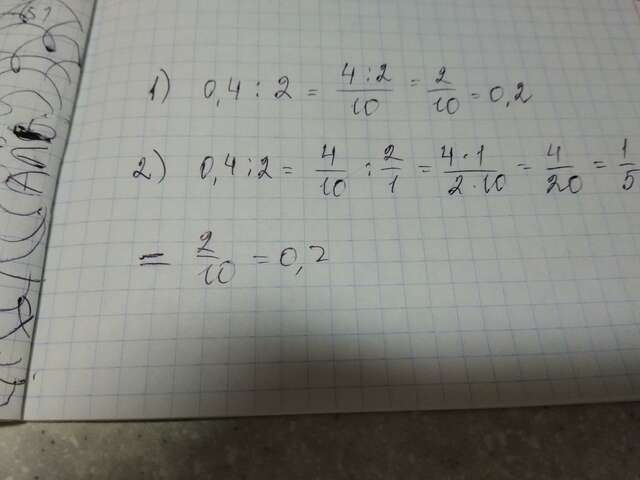 51
1) 0,4 : 2 = 4:2/10 = 2/10 = 0,2
2) 0,4 : 2 = 4/10 : 2/1 = 4·1/2·10 = 4/20 = 1/5
= 2/10 = 0,2